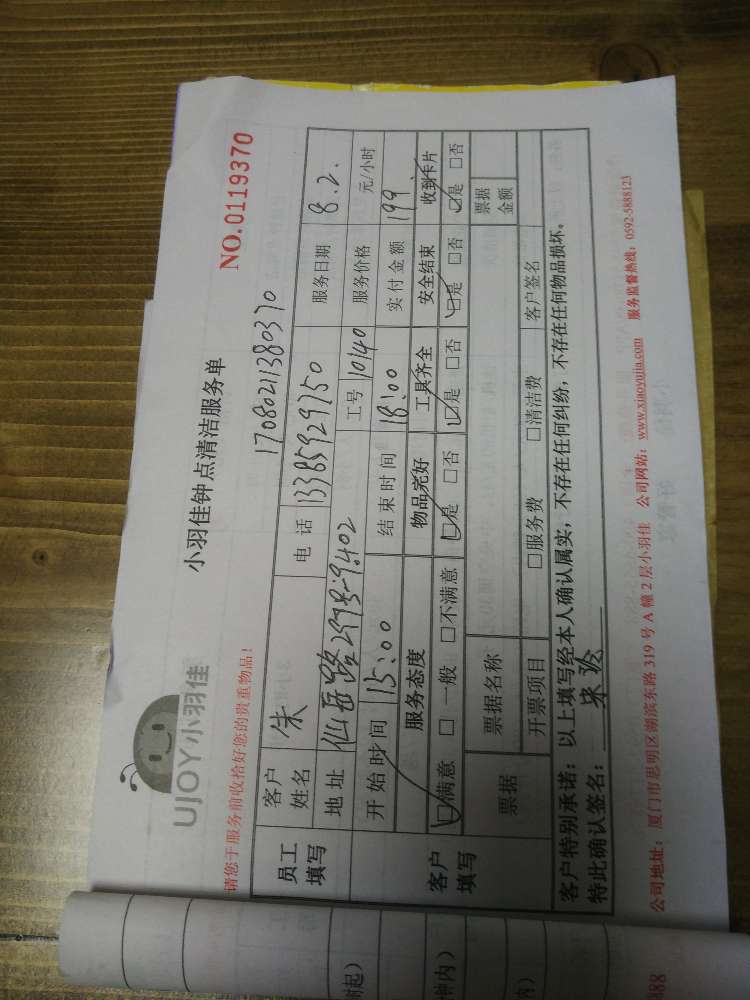 UJOY小羽佳
小羽佳钟点清洁服务单
NO.0119370
请您于服务前收拾好您的贵重物品!
17080211380370
员工填写
客户姓名 朱 电话 13385929750 服务日期 8.2.
地址 工号 10140 服务价格 元/小时
开始时间 15:00 结束时间 18:00 实付金额 199
客户填写
服务态度 物品完好 工具齐全 安全结束 收到卡片
☑满意 □一般 □不满意 ☑是 □否 ☑是 □否 ☑是 □否 ☑是 □否
票据 票据名称 票据金额
开票项目 □服务费 □清洁费 客户签名
客户特别承诺:以上填写经本人确认属实,不存在任何纠纷,不存在任何物品损坏。
特此确认签名:
公司地址:厦门市思明区湖滨东路 319 号 A 幢 2 层小羽佳 公司网站:www.xiaoyujia.com 服务监督热线:0592-5888123